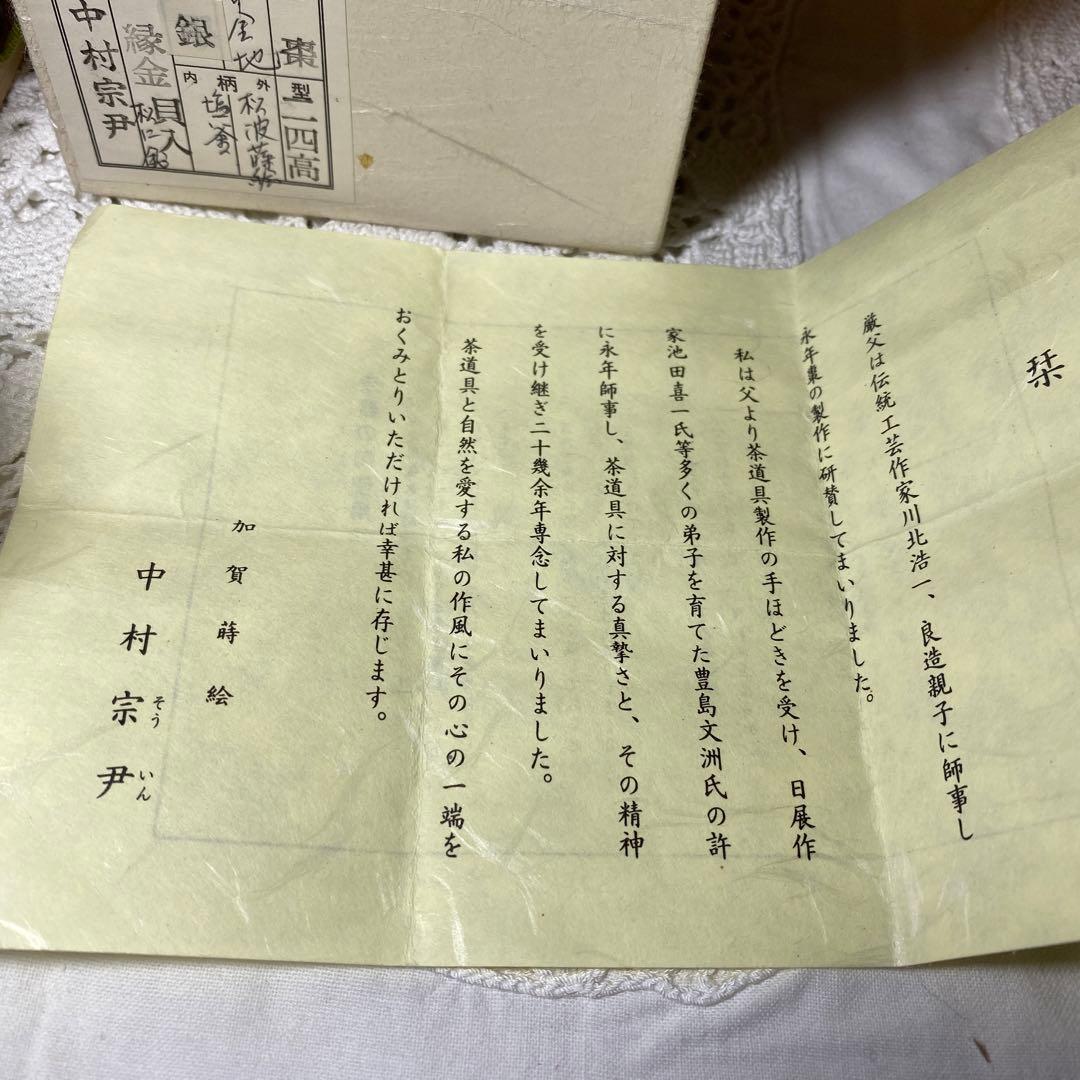 棗
型 一四高
外 松波蒔絵
柄
内 塩釜
金地
銀
貝入
縁金
中村宗尹
栞
厳父は伝統工芸作家川北浩一、良造親子に師事し
永年棗の製作に研賛してまいりました。
私は父より茶道具製作の手ほどきを受け、日展作
家池田喜一氏等多くの弟子を育てた豊島文洲氏の許
に永年師事し、茶道具に対する真摯さと、その精神
を受け継ぎ二十幾余年専念してまいりました。
茶道具と自然を愛する私の作風にその心の一端を
おくみとりいただければ幸甚に存じます。
加賀蒔絵
中村宗尹
そういん